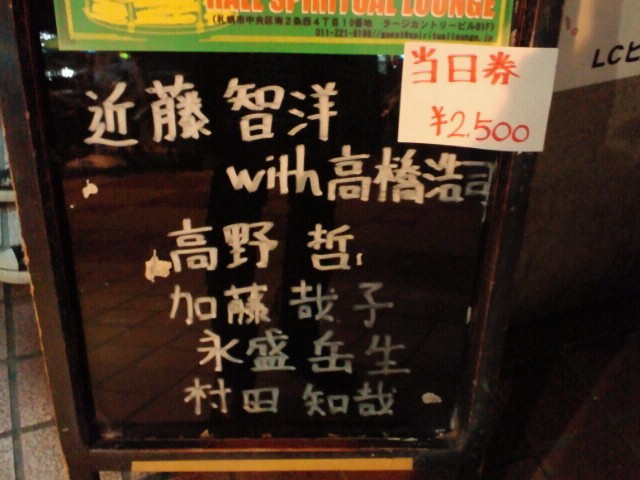 HALL SPIRITUAL LOUNGE
(札幌市中央区南2条西4丁目10番地 ラージカントリービルB1F)
当日券
¥2,500
近藤智洋
with高橋浩司
高野 哲
加藤 哉子
永盛 岳生
村田 知哉